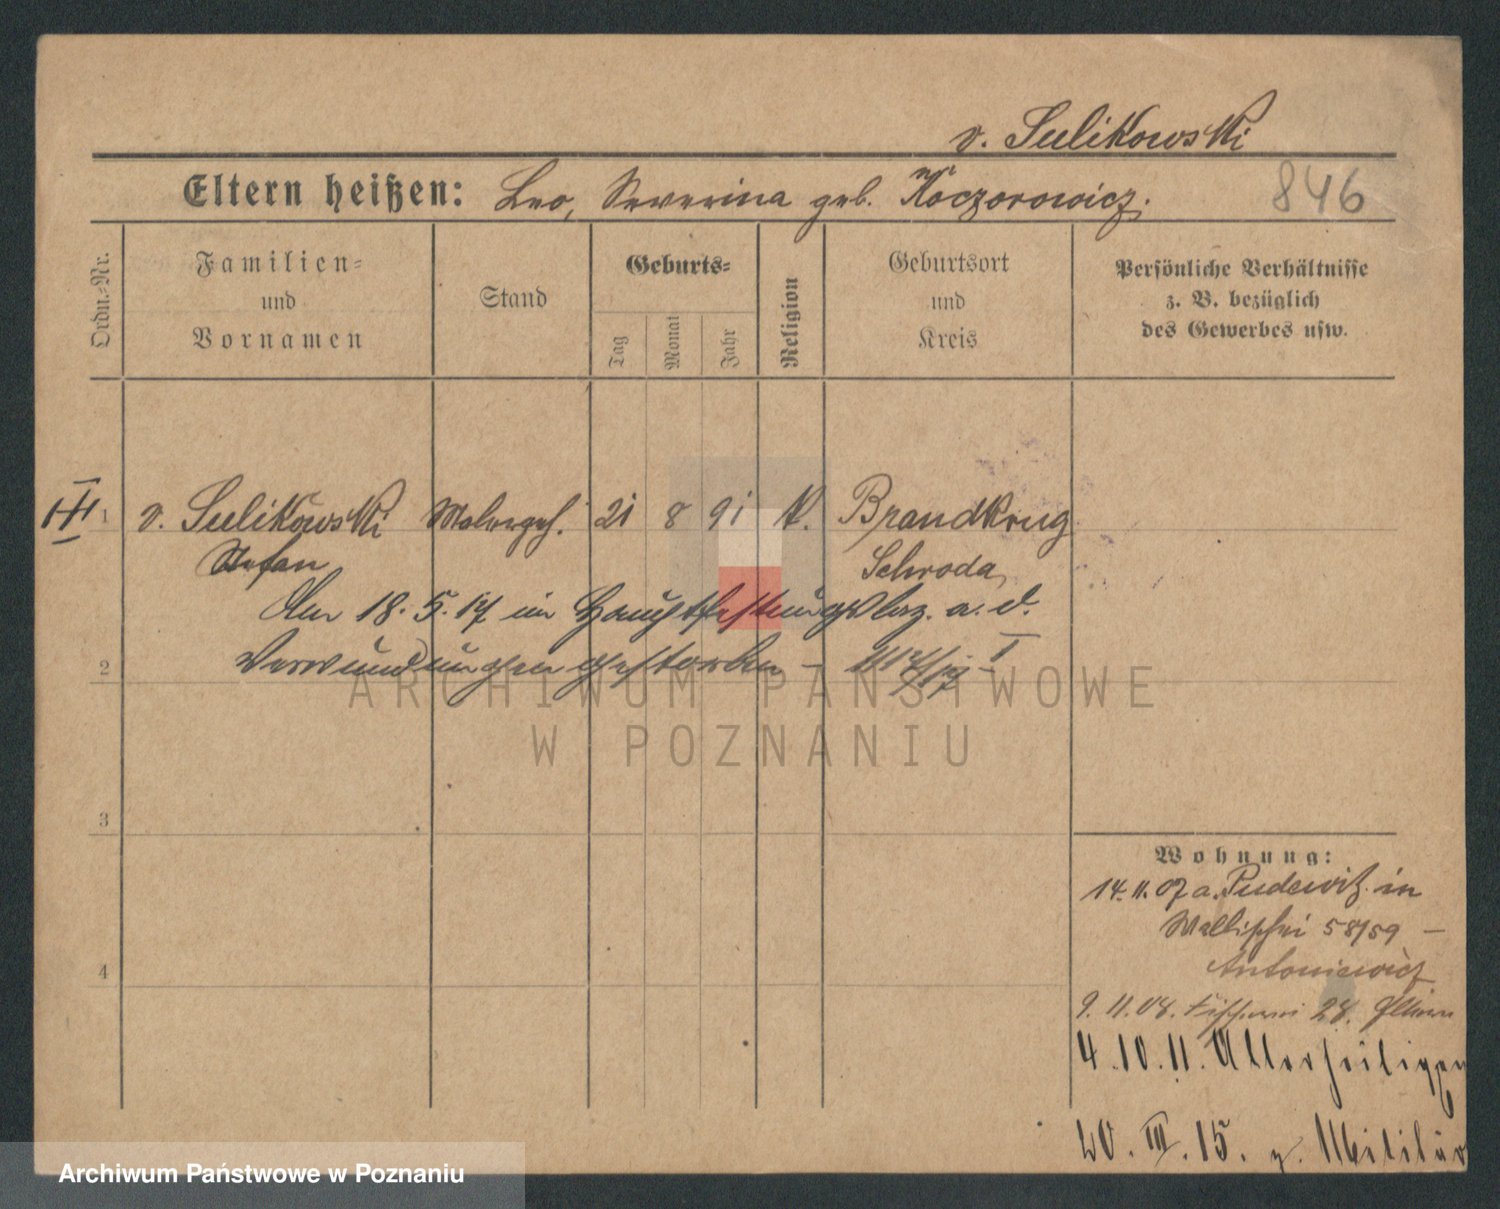 v. Sulikowski
Eltern heißen: Leo, Severina geb. Koczorowicz.
846
Ordn.-Nr.
Familien-
und
Vornamen
Stand
Geburts-
Tag
Monat
Jahr
Religion
Geburtsort
und
Kreis
Persönliche Verhältnisse
z. B. bezüglich
des Gewerbes usw.
1 v. Sulikowski Malergeh. 21 8 91 K. Brandkrug
Stefan Schroda
Am 18.5.17 im Hauptfestungslaz. a. d.
2 Verwundungen gestorben –
3
4
Wohnung:
14.11.07 a. Pudewitz in
Wallischei 58/59 –
Antoniewicz
9.11.08. Fischerei 28. Eltern
4.10.11. Allerheiligen
20.III.15. z. Militär
ARCHIWUM PAŃSTWOWE
W POZNANIU
Archiwum Państwowe w Poznaniu